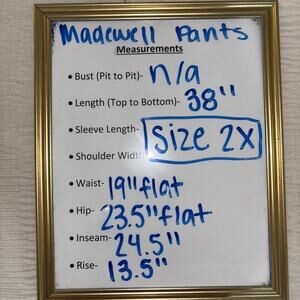 Madewell Pants
Measurements
• Bust (Pit to Pit)- n/a
• Length (Top to Bottom)- 38"
• Sleeve Length- Size 2X
• Shoulder Width
• Waist- 19" flat
• Hip- 23.5" flat
• Inseam- 24.5"
• Rise- 13.5"